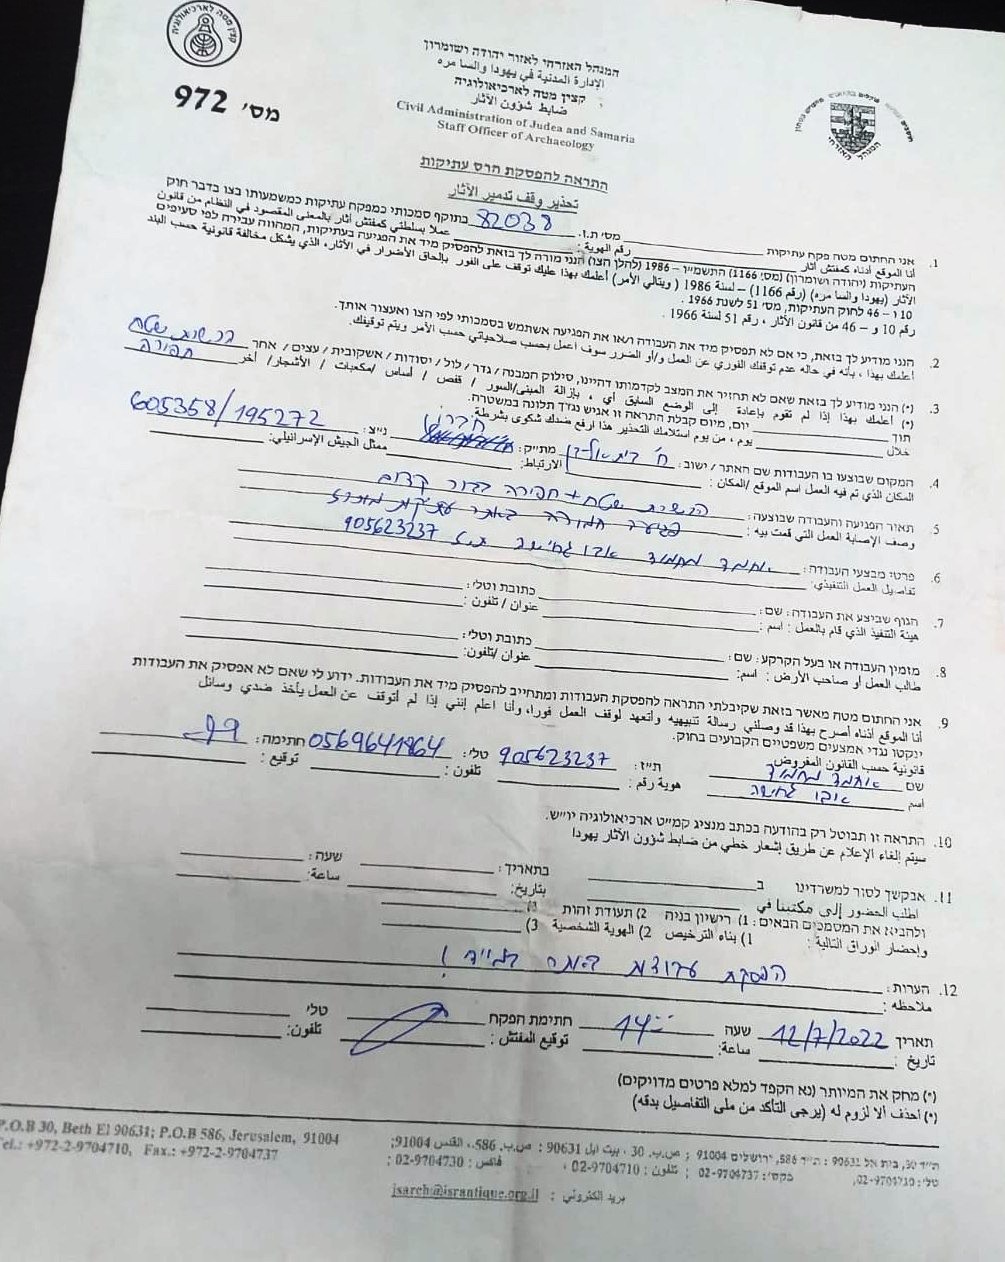 קצין מטה לארכיאולוגיה
מס' 972
המנהל האזרחי לאזור יהודה ושומרון
الإدارة المدنية في يهودا والسامره
קצין מטה לארכיאולוגיה
ضابط شؤون الآثار
Civil Administration of Judea and Samaria
Staff Officer of Archaeology
המנהל האזרחי
התראה להפסקת הרס עתיקות
تحذير وقف تدمير الآثار
1. אני החתום מטה פקח עתיקות מס' ת.ז. 82038 בתוקף סמכותי כמפקח עתיקות כמשמעותו בצו בדבר חוק
أنا الموقع أدناه كمفتش آثار رقم الهوية : عملا بسلطتي كمفتش آثار بالمعنى المقصود في النظام من قانون
העתיקות (יהודה ושומרון) (מס' 1166) התשמ"ו – 1986 (להלן הצו) הנני מורה לך בזאת להפסיק מיד את הפגיעה בעתיקות, המהווה עבירה לפי סעיפים
الآثار (يهودا والسامره) (رقم 1166) – لسنة 1986 ( ويتالي الأمر) أعلمك بهذا عليك توقف على الفور بإلحاق الأضرار في الآثار، الذي يشكل مخالفة قانونية حسب البند
10 ו – 46 לחוק העתיקות, מס' 51 לשנת 1966 .
رقم 10 و – 46 من قانون الآثار ، رقم 51 لسنة 1966 .
2. הנני מודיע לך בזאת, כי אם לא תפסיק מיד את העבודה ו/או את הפגיעה אשתמש בסמכותי לפי הצו ואעצור אותך.
أعلمك بهذا ، بأنه في حاله عدم توقفك الفوري عن العمل و/أو الضرر سوف اعمل بحسب صلاحياتي حسب الأمر ويتم توقيفك.
3. (*) הנני מודיע לך בזאת שאם לא תחזיר את המצב לקדמותו דהיינו, סילוק המבנה / גדר / לול / יסודות / אשקובית / עצים / אחר הכשרת שטח
(*) أعلمك بهذا إذا لم تقوم بإعادة إلى الوضع السابق أي ، بإزالة المبنى/السور / قفص / أساس /مكعبات / الأشجار/ أخر חפירה
תוך יום, מיום קבלת התראה זו אגיש נגדך תלונה במשטרה.
خلال يوم ، من يوم استلامك التحذير هذا ارفع ضدك شكوى بشرطة
4. המקום שבוצעו בו העבודות שם האתר / ישוב : מת"ק : חברון נ"צ : 605358/195272
المكان الذي تم فيه العمل اسم الموقع /المكان : الارتباط: ممثل الجيش الإسرائيلي:
5. תאור הפגיעה והעבודה שבוצעה : הכשרת שטח + חפירה בבור קדום
وصف الإصابة العمل التي قمت بيه : פגיעה חמורה באתר עתיקות מוכרז
6. פרטי מבצעי העבודה : אחמד מחמוד אבו ת.ז 905623237
تفاصيل العمل التنفيذي:
7. הגוף שביצע את העבודה : שם : כתובת וטלי :
هيئة التنفيذ الذي قام بالعمل : اسم : عنوان / تلفون :
8. מזמין העבודה או בעל הקרקע : שם : כתובת וטלי :
طالب العمل أو صاحب الأرض : اسم: عنوان /تلفون:
9. אני החתום מטה מאשר בזאת שקיבלתי התראה להפסקת העבודות ומתחייב להפסיק מיד את העבודות. ידוע לי שאם לא אפסיק את העבודות
أنا الموقع أدناه أصرح بهذا قد وصلني رسالة تنبيهيه وأتعهد لوقف العمل فورا، وأنا اعلم إنني إذا لم أتوقف عن العمل يأخذ ضدي وسائل
ינקטו נגדי אמצעים משפטיים הקבועים בחוק.
قانونية حسب القانون المفروض
שם אחמד מחמוד ת"ז : 905623237 טלי : 0569641864 חתימה :
اسم אבו هوية رقم : تلفون : توقيع :
10. התראה זו תבוטל רק בהודעה בכתב מנציג קמ"ט ארכיאולוגיה יו"ש.
سيتم إلغاء الإعلام عن طريق إشعار خطي من ضابط شؤون الآثار يهودا
11. אבקשך לסור למשרדינו ב בתאריך : שעה :
اطلب الحضور إلى مكتبنا في بتاريخ: ساعة:
ולהביא את המסמכים הבאים : 1) רישיון בניה 2) תעודת זהות 3)
وإحضار الوراق التالية : 1) بناء الترخيص 2) الهوية الشخصية 3)
12. הערות : הפסקת עבודות באתר במייד !
ملاحظه :
תאריך 12/7/2022 שעה 14:00 חתימת הפקח טלי
تاريخ : ساعة: توقيع المفتش : تلفون:
(*) מחק את המיותר (נא הקפד למלא פרטים מדויקים)
(*) أحذف ألا لزوم له (يرجى التأكد من ملى التفاصيل بدقه)
ת"ד 30, בית אל 90631 : ת"ד 586, ירושלים 91004 ; ص.ب. 30 ، بيت ايل 90631 : ص.ب. 586، القدس 91004;
טלי : 02-9704710, פקס': 02-9704737 ; تلفون : 02-9704710 ، فاكس : 02-9704730 ;
بريد الكتروني : jsarch@israntique.org.il
P.O.B 30, Beth El 90631; P.O.B 586, Jerusalem, 91004
Tel.: +972-2-9704710, Fax.: +972-2-9704737